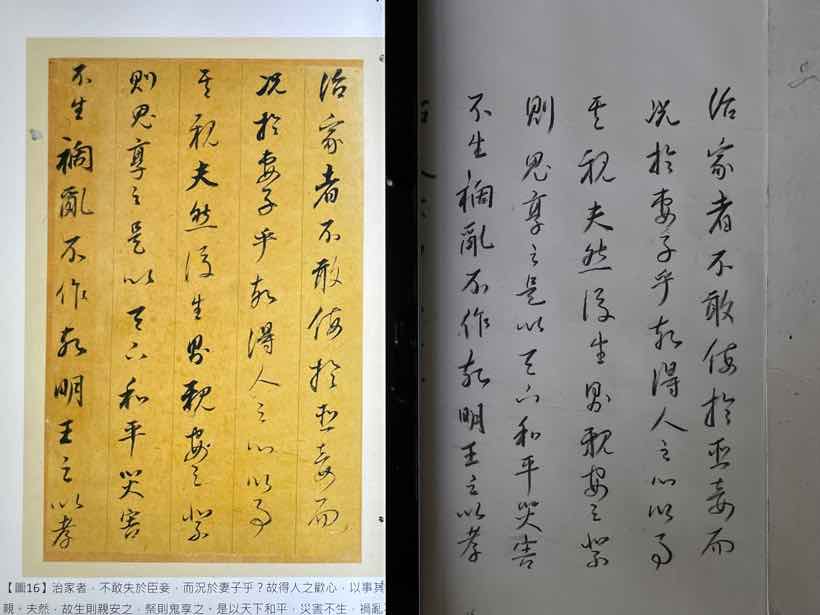 治家者不敢侮於臣妾而
况於妻子乎故得人之心以事
其親夫然後生則親安之祭
則鬼享之是以天下和平災害
不生禍亂不作故明王之以孝
【圖16】治家者，不敢失於臣妾，而況於妻子乎？故得人之歡心，以事其
親。夫然，故生則親安之，祭則鬼享之。是以天下和平，災害不生，禍亂
治家者不敢侮於臣妾而
况於妻子乎故得人之心以事
其親夫然後生則親安之祭
則鬼享之是以天下和平災害
不生禍亂不作故明王之以孝